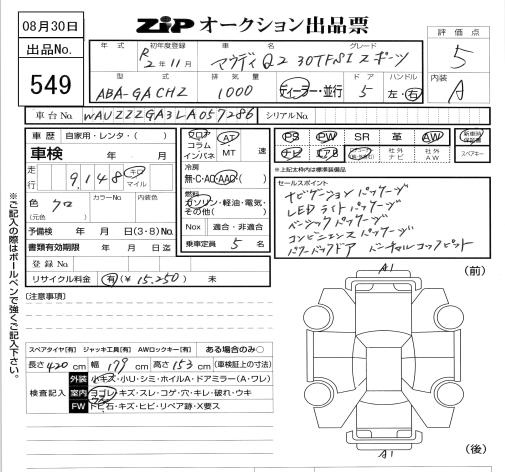 08月30日
ZIP オークション出品票
出品No.
549
年式 初年度登録 車名 グレード
R2年11月 アウディQ2 30TFSI スポーツ
型式 排気量 ドア ハンドル
ABA-GACHZ 1000 ディーラー・並行 5 左・右
評価点
5
内装
A
車台No. WAUZZZGA3LA057286 シリアルNo.
車歴 自家用・レンタ・( )
車検 年 月
走行 9,148 キロ マイル
色 クロ (元色) カラーNo. 内装色
予備検 年 月(3・8)No.
書類有効期限 年 月 日迄
登録No.
リサイクル料金 有(¥ 15,250 ) 未
フロア コラム インパネ AT・MT 速
冷房
無・C・AC・AAC( )
燃料
ガソリン・軽油・電気・その他( )
Nox 適合・非適合
乗車定員 5 名
PS PW SR 革 AW
ナビ エアB 社外ナビ 社外AW
新車時保証書
スペアキー
※上記太枠内は標準装備品
セールスポイント
ナビゲーションパッケージ
LEDライトパッケージ
ベーシックパッケージ
コンビニエンスパッケージ
パワーバックドア バーチャルコックピット
※ご記入の際はボールペンで強くご記入下さい。
[注意事項]
スペアタイヤ[有] ジャッキ工具[有] AWロックキー[有] ある場合のみ○
長さ 420 cm 幅 179 cm 高さ 153 cm (車検証上の寸法)
検査記入
外装 小キズ・小U・シミ・ホイルA・ドアミラー(A・ワレ)
室内 ヨゴレ・キズ・スレ・コゲ・穴・キレ・破れ・ウキ
FW トビ石・キズ・ヒビ・リペア跡・X要ス
A1
(前)
A1
(後)